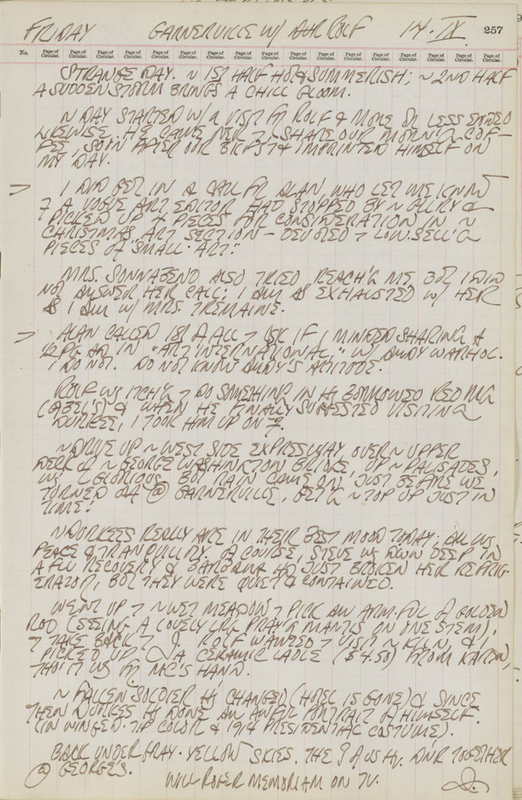 FRIDAY GARNERVILLE W/ AHR ROLF 14·IX 257
No. Page of Circular. Page of Circular. Page of Circular. Page of Circular. Page of Circular. Page of Circular. Page of Circular. Page of Circular. Page of Circular. Page of Circular. Page of Circular. Page of Circular. Page of Circular. Page of Circular. Page of Circular. Page of Circular.
STRANGE DAY. ~ 1ST HALF HOT & SUMMERISH; ~ 2ND HALF
A SUDDEN STORM BRINGS A CHILL GLOOM.
~ DAY STARTED W/ A VISIT FR ROLF & MORE OR LESS ENDED
LIKEWISE. HE CAME OVER SHARE OUR MORN'G COF-
FEE, SOON AFTER OUR BKFST & IMPRINTED HIMSELF ON
MY DAY.
> I DID GET IN A CALL FR ALAN, WHO LET ME KNOW
A VOGUE ART EDITOR HAD STOPPED BY ~ GALLERY &
PICKED UP PIECES FOR CONSIDERATION IN ~
CHRISTMAS ART SECTION - DEVOTED LOW-SELL'G
PIECES OF "SMALL·ART."
MRS. SONNABEND ALSO TRIED REACH'G ME BUT I DID
NOT ANSWER HER CALL; I AM AS EXHAUSTED W/ HER
AS I AM W/ MRS. TREMAINE.
> ALAN CALLED 1ST OF ALL ASK IF I MINDED SHARING A
PG AD IN "ART INTERNATIONAL" W/ ANDY WARHOL.
I DO NOT. DO NOT KNOW ANDY'S ATTITUDE.
ROLF WS ITCH'G DO SOMETHING IN HS BORROWED RED
(ABEL'S) & WHEN HE FINALLY SUGGESTED VISITING
DURKEES, I TOOK HIM UP ON IT.
~ DRIVE UP ~ WEST SIDE EXPRESSWAY, OVER ~ UPPER
DECK OF ~ GEORGE WASHINGTON BRIDGE, UP ~ PALISADES,
WS GLORIOUS. BUT RAIN CAME ON JUST BEFORE WE
TURNED OFF @ GARNERVILLE, GET'G ~ TOP UP JUST IN
TIME!
~ DURKEES REALLY ARE IN THEIR BEST MOOD TODAY: ALL WS
PEACE & TRANQUILITY. OF COURSE, STEVE WS DOWN DEEP IN
A FLU RECOVERY & BARBARA HD JUST BROKEN HER REFRIG-
ERATOR, BUT THEY WERE QUIET & CONTAINED.
WENT UP ~ WET MEADOW PICK AN ARM-FUL OF GOLDEN
ROD (SEEING A LOVELY LRG PRAY'G MANTIS ON ONE STEM),
TAKE BACK & ROLF WANTED VISIT ~ KILN, &
PICKED UP A CERAMIC LADLE ($4.50) FROM KAREN,
THO IT WS BY HAND.
~ FALLEN SOLDIER HS CHANGED (HOTEL IS GONE) & SINCE
THEN DURKEE HS DONE AN AWFUL PORTRAIT OF HIMSELF
(IN WINGED-TIP COLOR & 1914 PRESIDENTIAL COSTUME).
BACK UNDER GRAY-YELLOW SKIES. THE 3 OF US HV DNR TOGETHER
@ GEORGE'S.
WILL ROGER MEMORIAM ON TV.